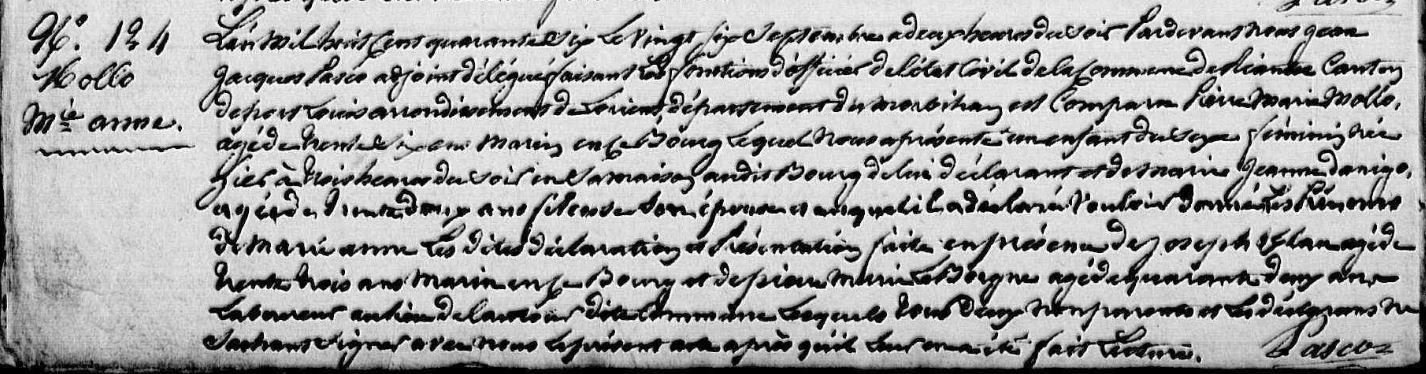 N°. 124
Mollo
Mie anne.
L'an mil huit Cent quarante Six le vingt six Septembre a deux heures du soir Pardevant nous jean
jacques Pasco adjoint délégué faisant les fonctions d'officier de l'état Civil de la Commune de Riantec Canton
de port Louis arrondissement de Lorient, département du morbihan est Comparu Pierre Marie Mollo,
agé de trente Six ans Marin en ce Bourg lequel nous a présenté un enfant du sexe féminin née
hier à trois heures du soir en sa maison audit Bourg de lui déclarant et de marie jeanne danigo,
agée de trente deux ans fileuse Son épouse et auquel il a déclaré vouloir donné les Prénoms
de marie anne les dites déclaration et Présentation faite en présence de joseph agé de
trente trois ans Marin en ce Bourg et de pierre marie Le Borgne agé de quarante deux ans
Laboureur au lieu de dite Commune lesquels tous deux non parents et les déclarans ne
Sachant signer avec nous le présent acte après qu'il leur en a été fait lecture. Pasco